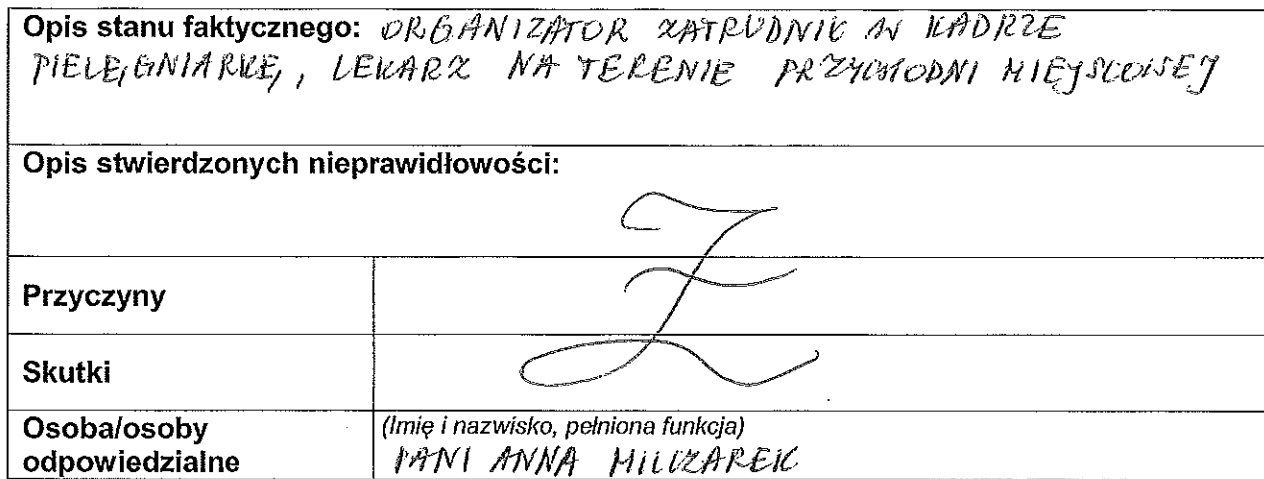 Opis stanu faktycznego: ORGANIZATOR ZATRUDNIŁ W KADRZE
PIELĘGNIARKĘ, LEKARZ NA TERENIE PRZYCHODNI MIEJSCOWEJ
Opis stwierdzonych nieprawidłowości:
Przyczyny
Skutki
Osoba/osoby
odpowiedzialne
(Imię i nazwisko, pełniona funkcja)
PANI ANNA MILCZAREK